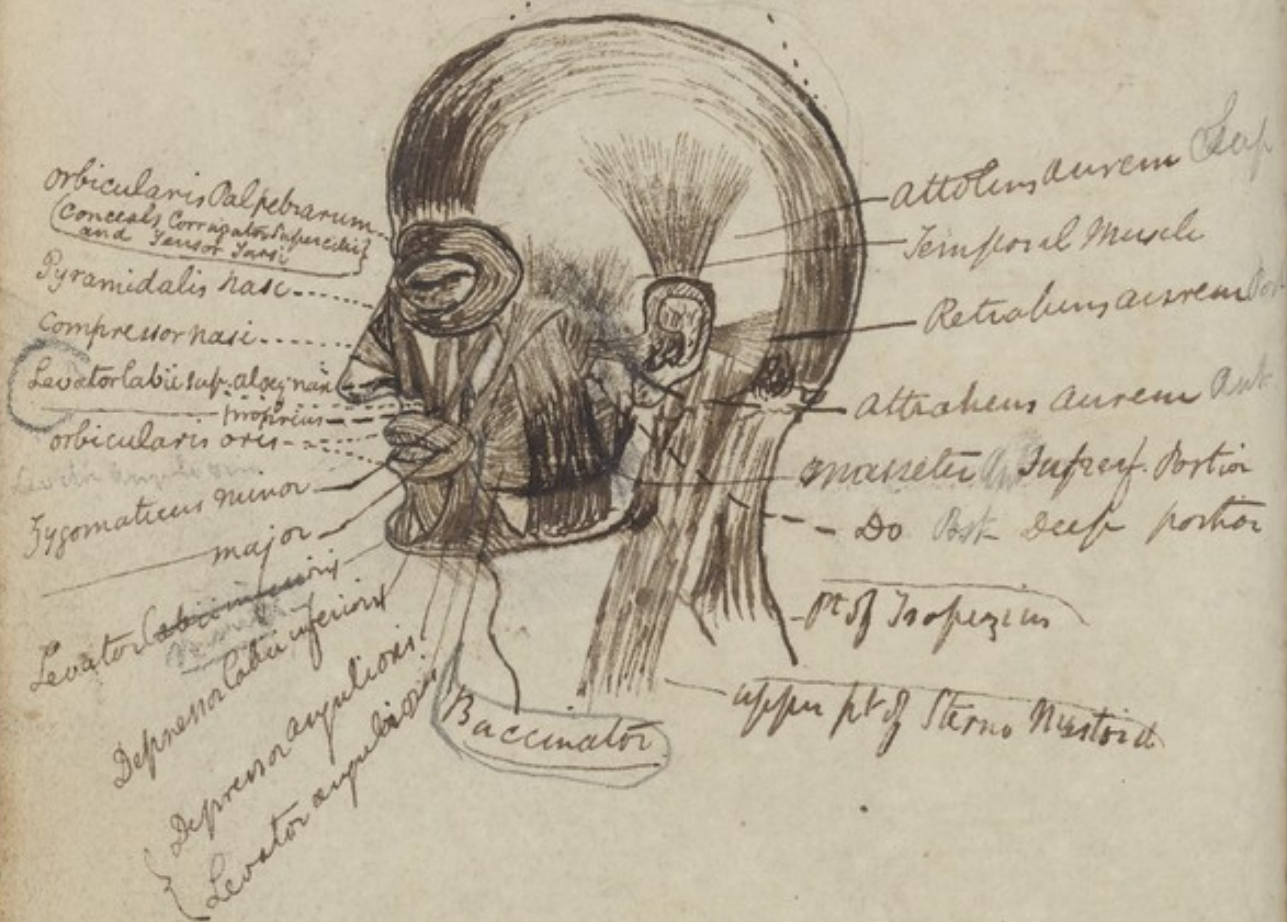 orbicularis Palpebrarum
(conceals Corrugator Supercilii
and Tensor Tarsi)
Pyramidalis nasi
Compressor nasi
Levator labii sup. alaeq nasi
proprius
orbicularis oris
Zygomaticus minor
major
Levator labii inferioris
Depressor labii inferiorix
Depressor angulioris
Levator angulioris
Buccinator
Attolens aurem Sup
Temporal Muscle
Retrahens aurem Pos
Attrahens aurem Ant
Masseter Superf. Portion
Do Post Deep portion
pt of Trapezius
upper pt of Sterno Mastoid